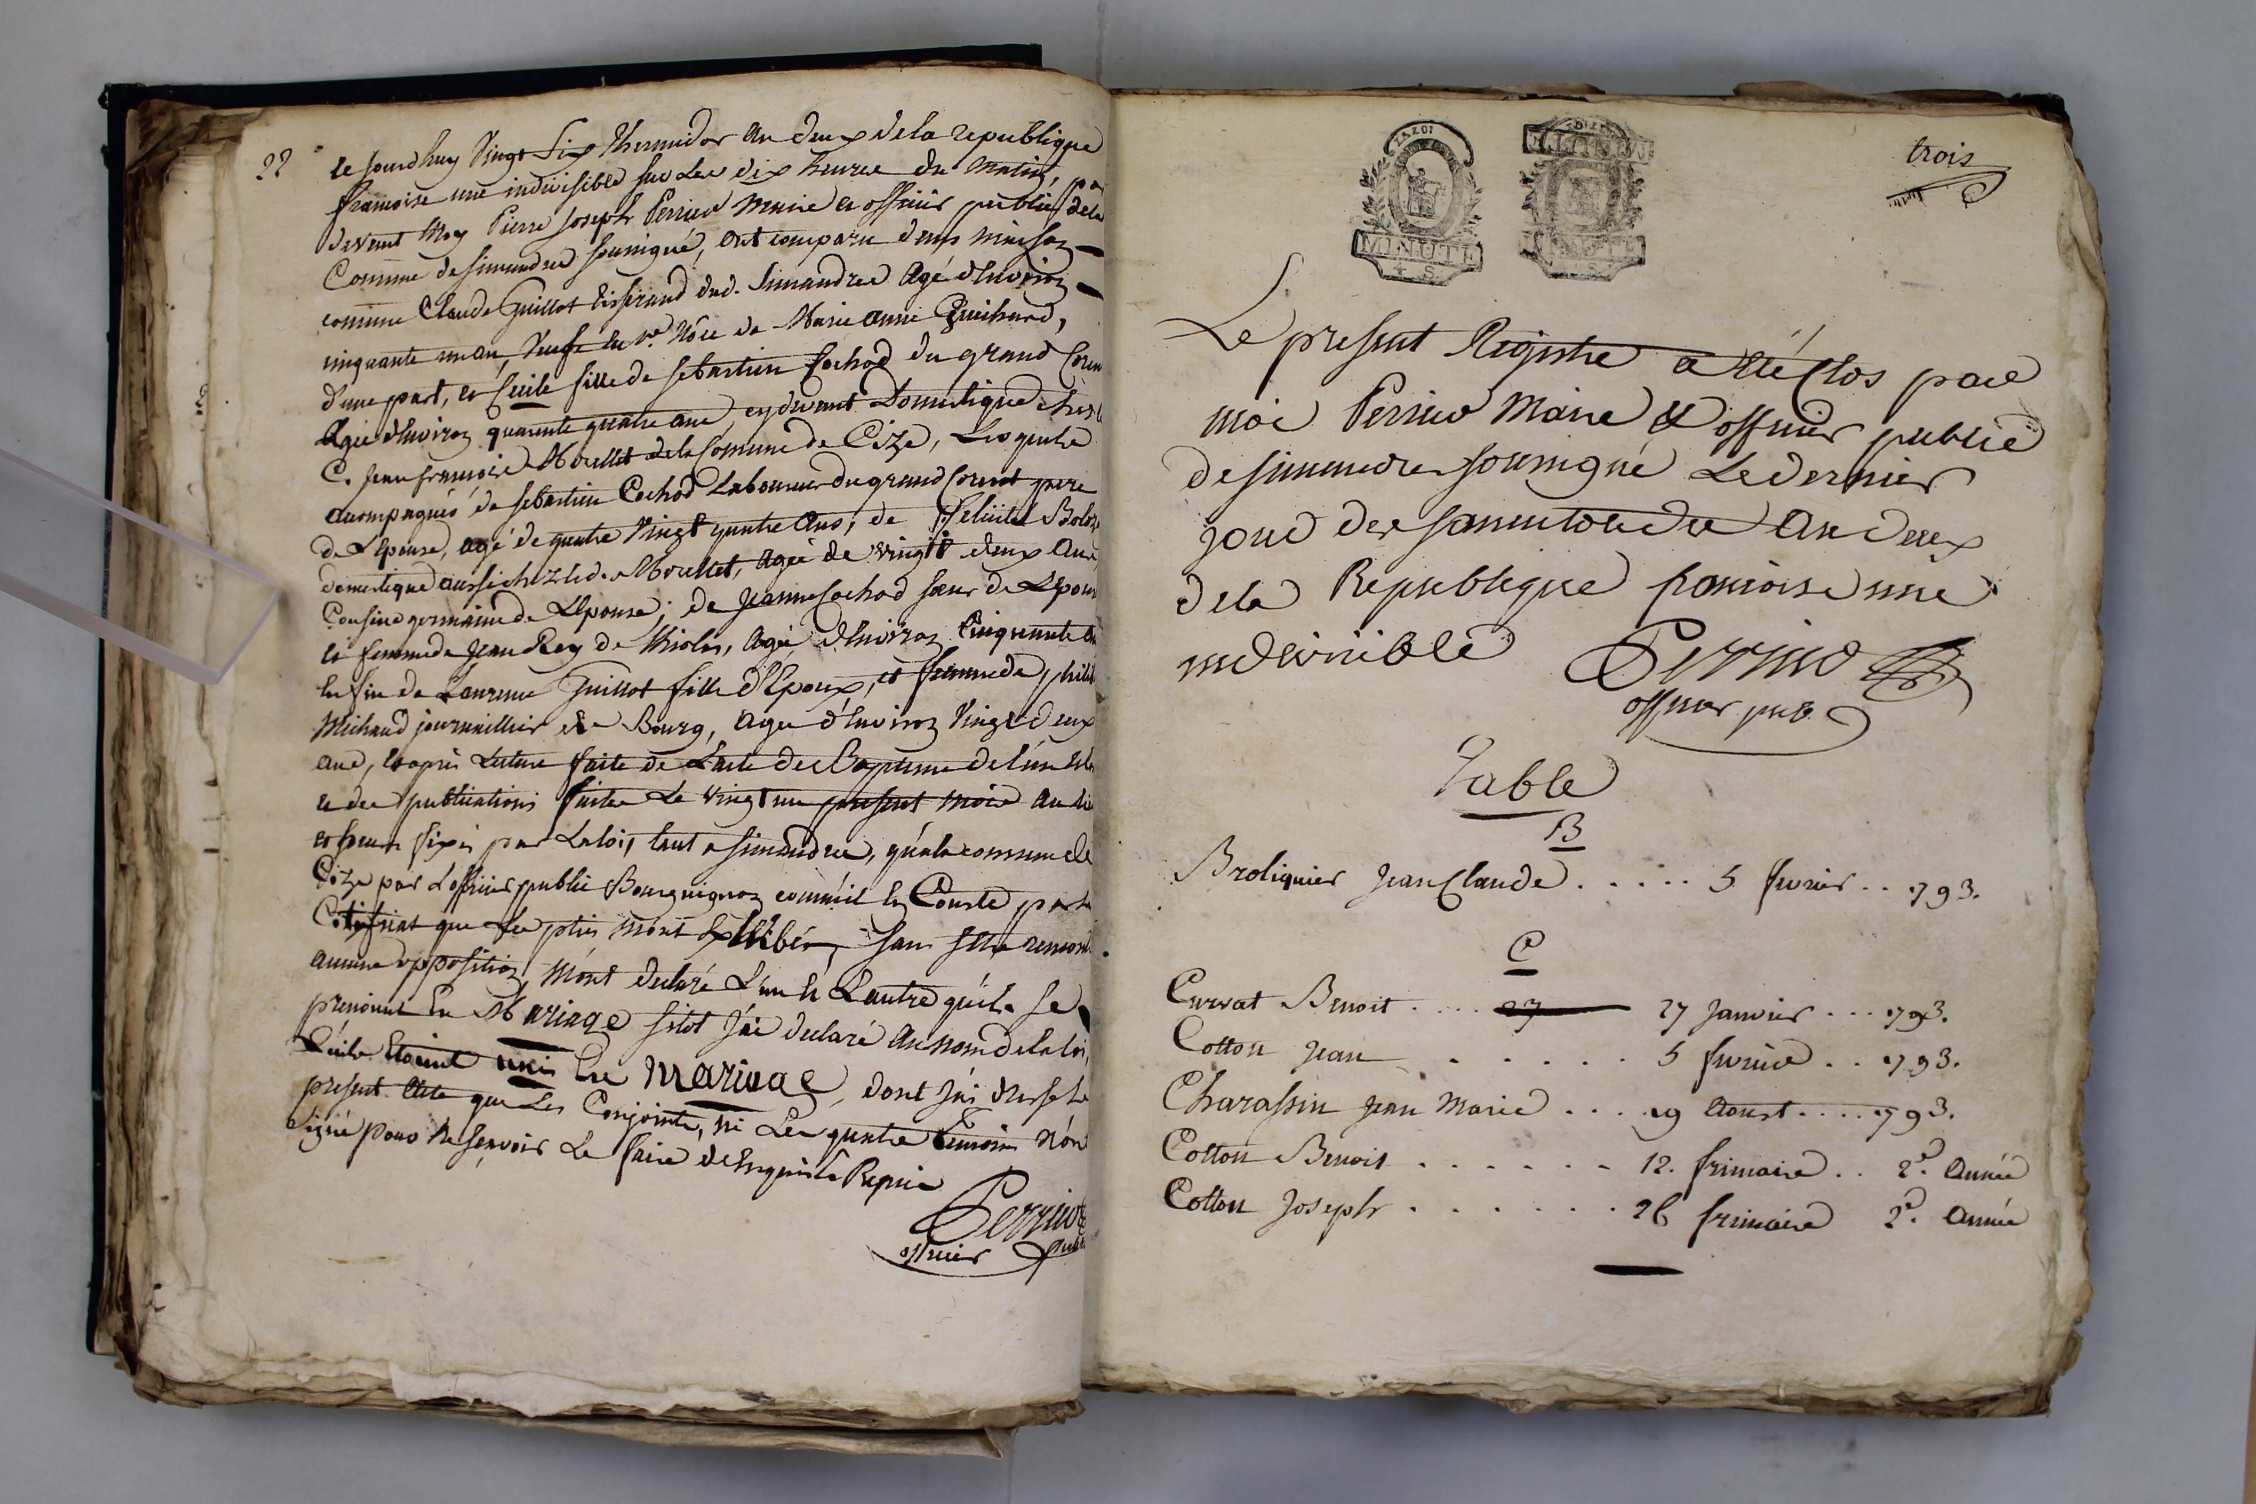 22
ce jourdhuy Vingt Six Thermidor An deux de la republique
francoise une indivisible sur Les dix heures du Matin, par
devant Moy Pierre Joseph Perrier Maire et officier public de la
Commune de Simandres soussigné, ont comparu dans maison
commune Claude Guillot tisserand dud. Simandres Agé d'Environ
cinquante un an, Veufs en 1re Nôce de Marie anne Guichard,
d'une part, et Cecile fille de sebastien Cochod du grand Corent
Agée d'Environ quarente quatre ans, cydevant Domestique chez le
C. Jean françois Morellet de la Commune de Cize, Lesquels
acompagnés de sebastien Cochod Laboureur du grand Corent pere
de L'Epouse, agé de quatre Vingt quatre Ans, de felicité Boloz
domestique aussi chez led. Morellet, Agée de vingt deux Ans
Cousine germaine de L'Epouse; de Jeanne Cochod sœur de L'Epouse
et femme de Jean Rey de Thiolas, Agée d'Environ Cinquante
En fin de Laurence Guillot fille d'Epoux, et femme de, phili
Michaud journaillier de Bourg, agée d'Environ Vingt deux
ans, et apres Lecture faite de L'acte de Baptême de l'un
et des publications faites Le Vingt un present mois au
et heure fixés par La loi, tant a Simandres, qu'à la commune de
Cize par L'officier public Bourguignon comme il En Conste par
Certificat que Les plus mont Exhibés, sans Etre
aucune opposition, M'ont declaré L'un à L'autre qu'ils se
prenoient En Mariage sitot J'ai declaré Au nom de la loi
qu'ils Etoient unis En Mariage, dont j'ai dressé Le
present Acte que Les Conjoints, ni Les quatre temoins N'on
signé pour Ne sçavoir Le faire de Enquis et Requis
Perrier
officier public
MINUTE
MINUTE
trois
Le present Registre a Eté Clos par
moi Perrier Maire et officier public
de Simandres soussigné Le dernier
jour des sanculotides An deux
de la Republique francoise une
indivisible Perrier
officier pub.
Table
B
Broliquier Jean Claude ..... 5 fevrier .. 1793.
C
Curvat Benoit .... 27 27 Janvier ... 1793.
Cotton Jean ...... 5 fevrier .. 1793.
Charassin Jean Marie .... 19 Aoust .... 1793.
Cotton Benoit ...... 12. frimaire .. 2e. Année
Cotton Joseph ...... 26 frimaire 2e. Année